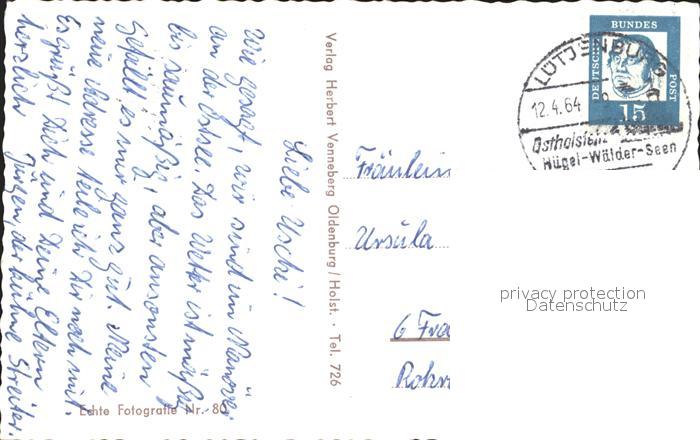 Liebe Uschi!
Wie gesagt, wir sind im Manöver
an der Ostsee. Das Wetter ist mäßig
bis saumäßig, aber ansonsten
gefällt es mir ganz gut. Meine
neue Adresse teile ich Dir noch mit.
Es grüßt Dich und Deine Eltern
herzlich Jürgen, der kühne Streiter.
Echte Fotografie Nr. 80
Verlag Herbert Venneberg Oldenburg/Holst. · Tel. 726
DEUTSCHE BUNDES POST
15
LÜTJENBURG
12.4.64
Ostholstein
Hügel-Wälder-Seen
Fräulein
Ursula
6 Fra
Rohr
privacy protection
Datenschutz